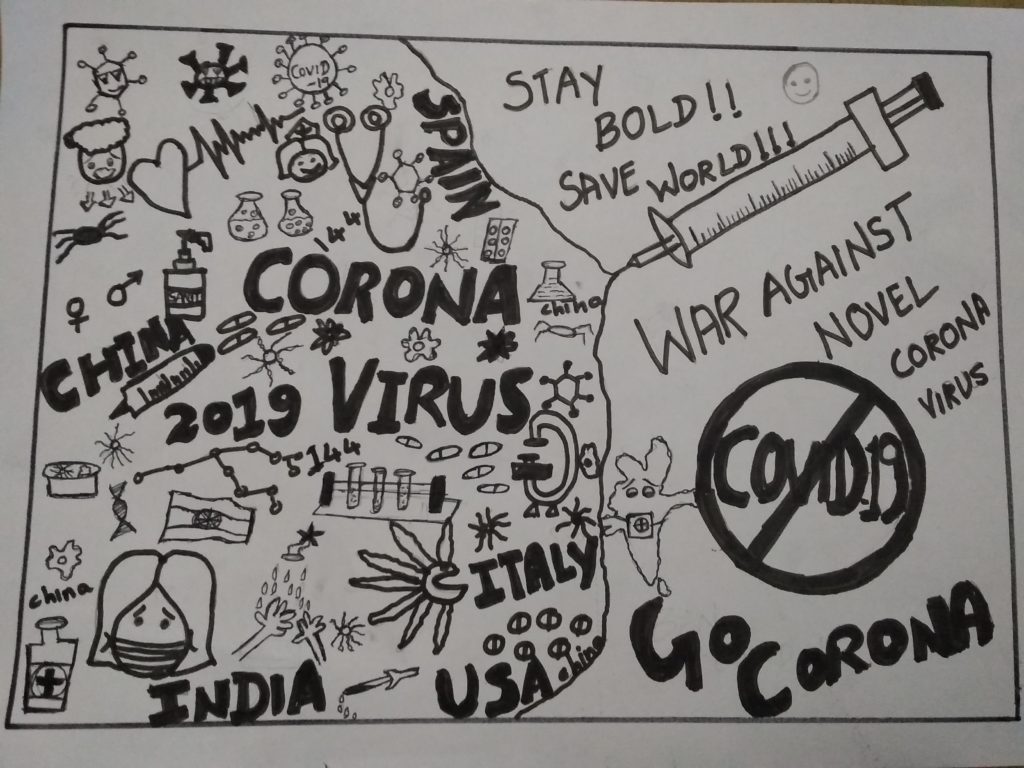 COVID
-19
SPAIN
STAY
BOLD!!
SAVE WORLD!!!
144
CORONA
SANIT
china
CHINA
WAR AGAINST
NOVEL
CORONA
VIRUS
2019 VIRUS
144
COVID19
ITALY
china
GO
CORONA
INDIA
USA
china